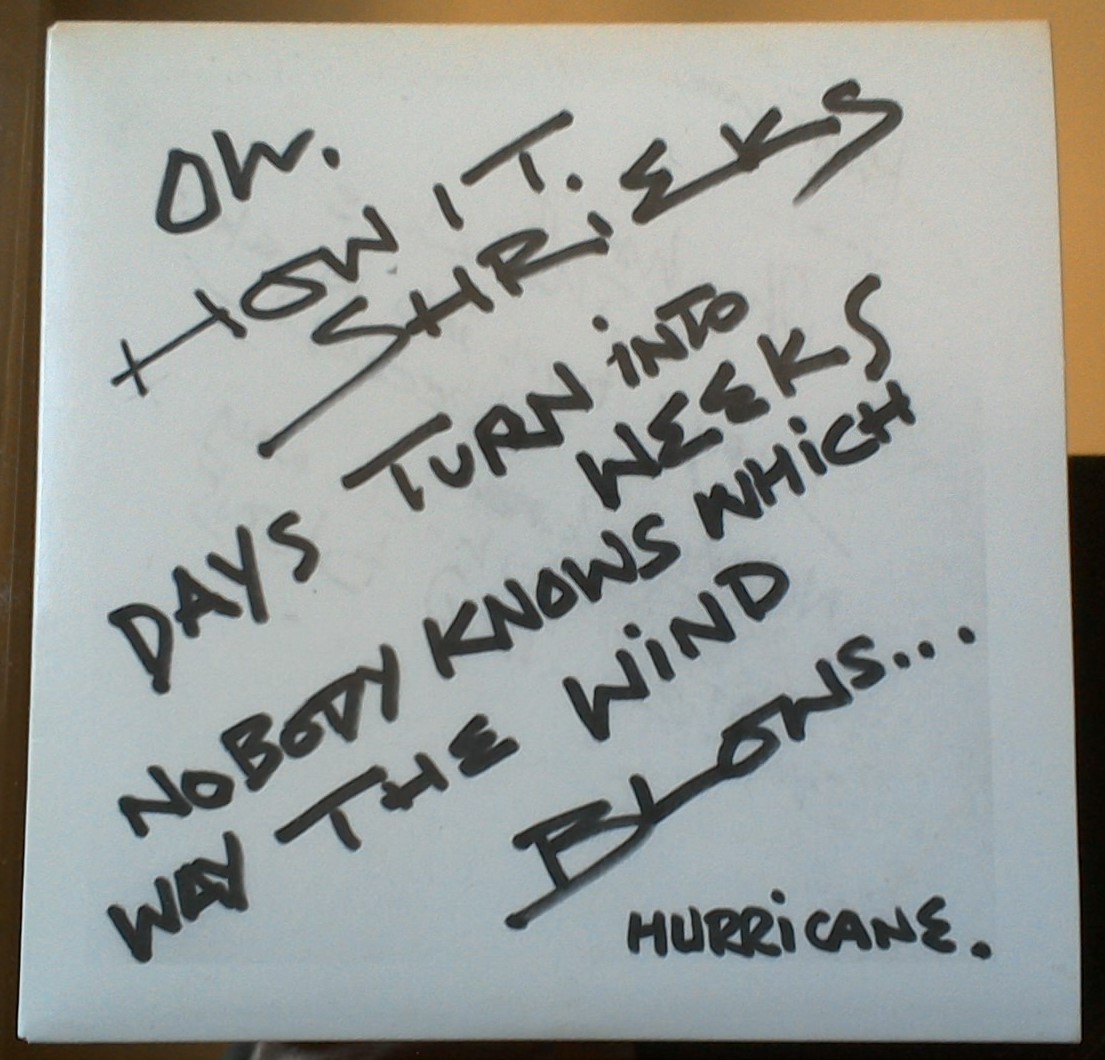 OH.
HOW IT.
SHRiEKS
DAYS TURN iNTO
WEEKS
NOBODY KNOWS WHiCH
WAY THE WiND
BLOWS...
HURRiCANE.